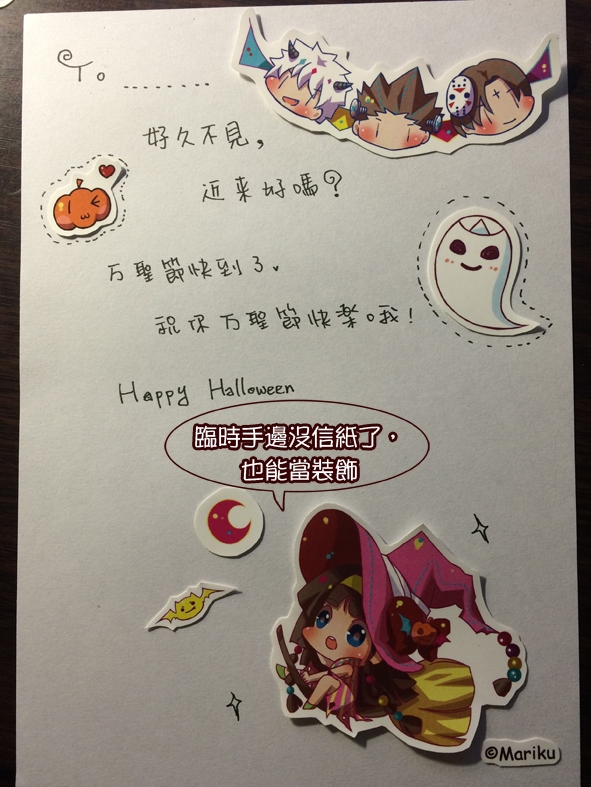 To ........
好久不見，
近来好嗎？
万聖節快到了。
祝你万聖節快楽。哦！
Happy Halloween
臨時手邊沒信紙了，
也能當裝飾
©Mariku